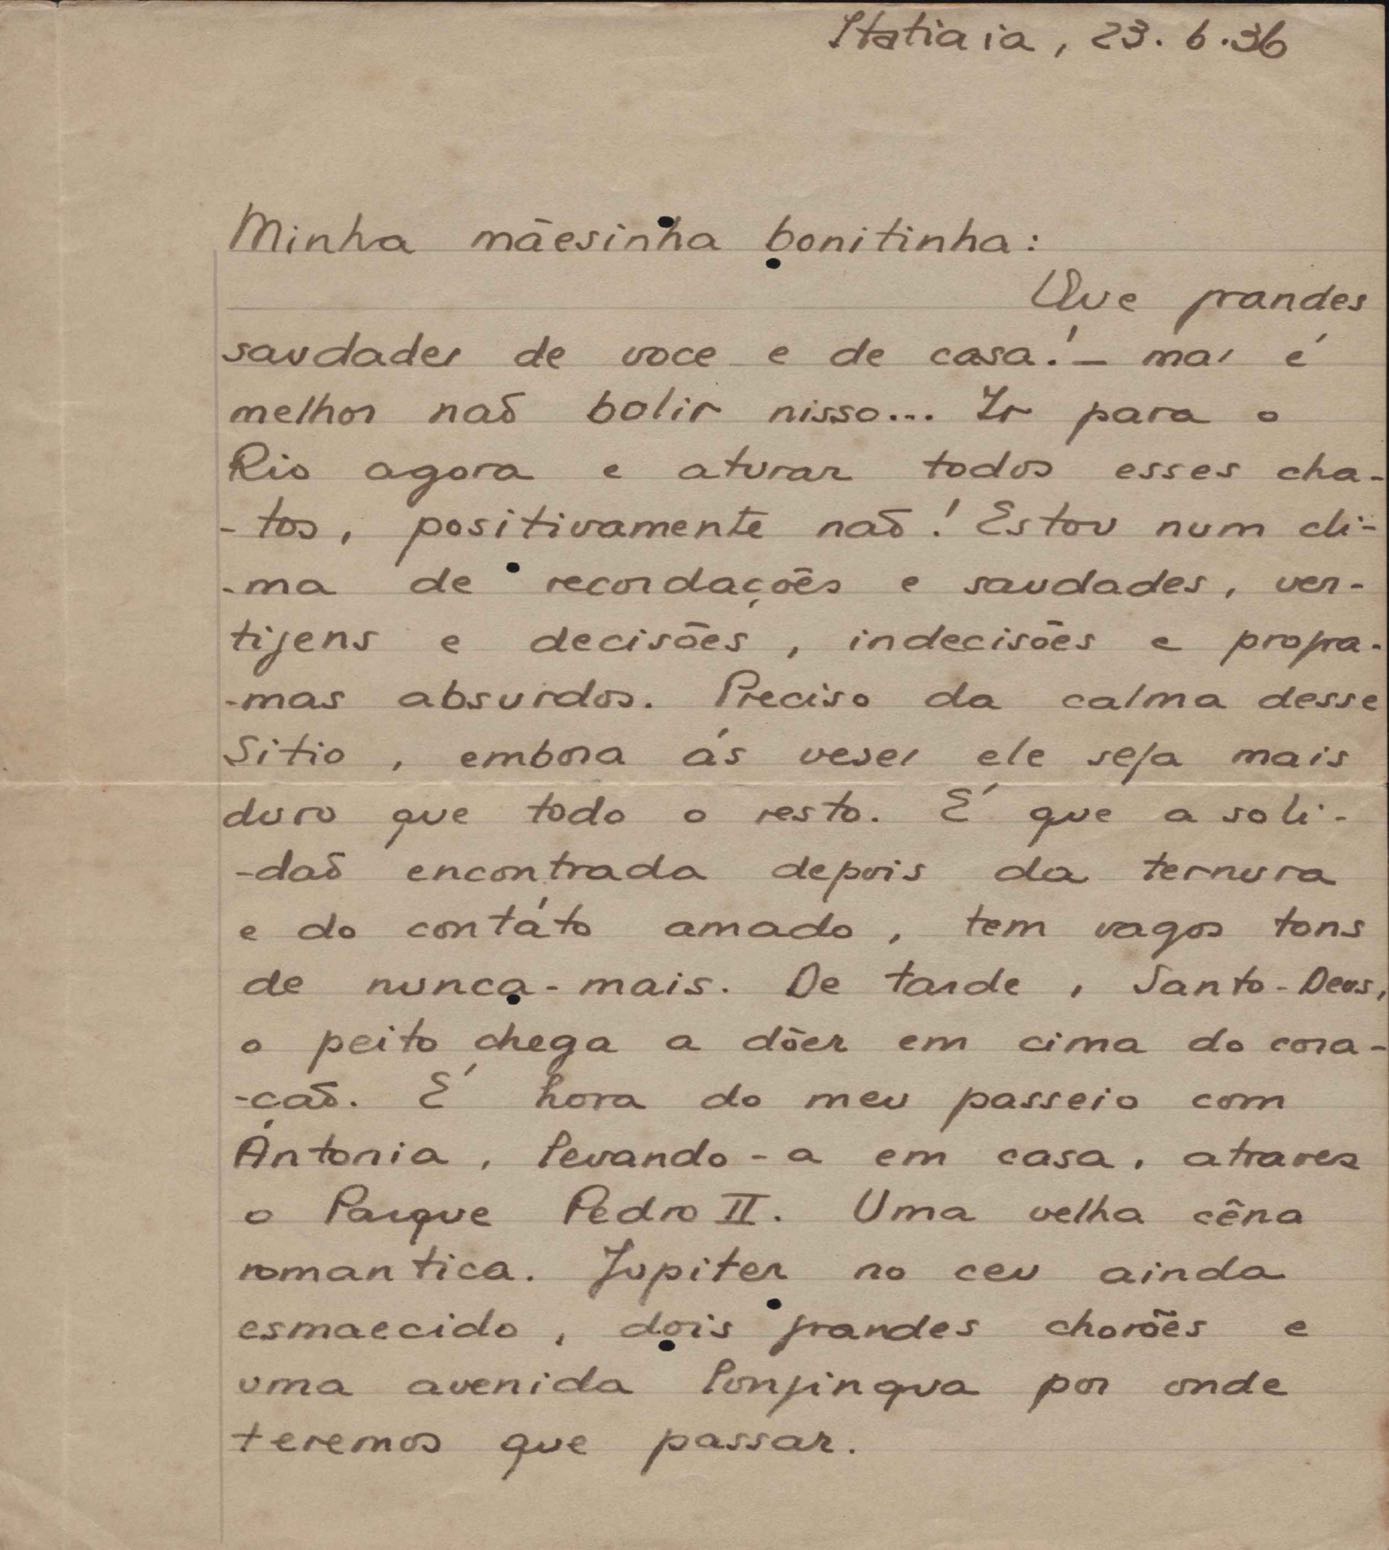 Itatiaia, 23.6.36
Minha mãesinha bonitinha:
Que grandes
saudades de voce e de casa! — mas é
melhor naõ bolir nisso... Ir para o
Rio agora e aturar todos esses cha-
-tos, positivamente naõ! Estou num cli-
-ma de recordaçoẽs e saudades, ver-
tijens e decisões, indecisões e progra-
-mas absurdos. Preciso da calma desse
Sitio, embora ás veses ele seja mais
duro que todo o resto. É que a soli-
-daõ encontrada depois da ternura
e do contáto amado, tem vagos tons
de nunca-mais. De tarde, Santo-Deus,
o peito chega a dôer em cima do cora-
-çaõ. É hora do meu passeio com
Ántonia, levando-a em casa, atravez
o Parque Pedro II. Uma velha cêna
romantica. Jupiter no ceu ainda
esmaecido, dois grandes chorões e
uma avenida longinqua por onde
teremos que passar.